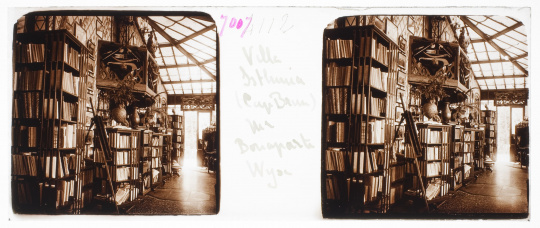 7007112
Villa
Bithynia
(Cap Brun)
Me
Bonaparte
Wyse